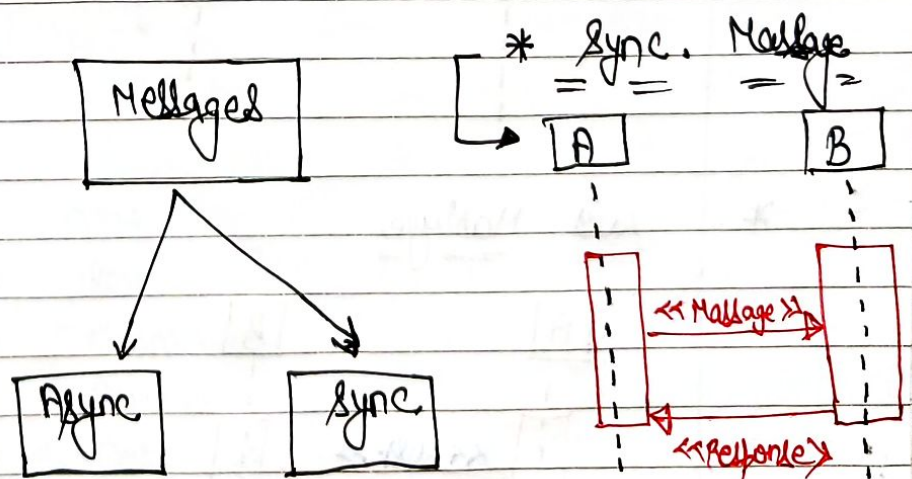 Messages
Async
Sync
* Sync. Massage
A
B
<<Massage>>
<<Response>>